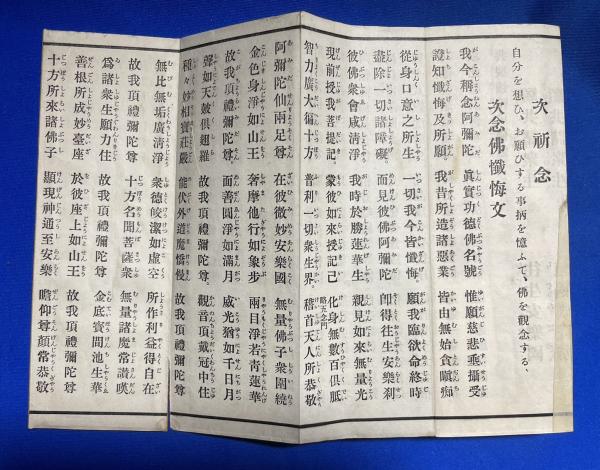 次祈念
自分を想ひ、お願ひする事柄を憶ふて、佛を觀念する、
次念佛懺悔文
我今稱念阿彌陀 眞實功德佛名號 惟願慈悲垂攝受
證知懺悔及所願 我昔所造諸惡業 皆由無始貪瞋痴
從身口意之所生 一切我今皆懺悔。 願我臨欲命終時
盡除一切諸障礙 面見彼佛阿彌陀 卽得往生安樂刹
彼佛衆會咸淸淨 我時於勝蓮華生 親見如來無量光
現前授我菩提記 蒙彼如來授記已 化身無數百俱胝
智力廣大徧十方 普利一切衆生界 略五念門 稽首天人所恭敬
阿彌陀仙兩足尊 在彼微妙安樂國 無量佛子衆圍繞
金色身淨如山王 奢摩他行如象步 兩目淨若靑蓮華
故我頂禮彌陀尊 面善圓淨如滿月 威光猶如千日月
聲如天鼓俱翅羅 故我頂禮彌陀尊 觀音頂戴冠中住
種々妙相寶莊嚴 能伏外道魔憍慢 故我頂禮彌陀尊
無比無垢廣淸淨 衆德皎潔如虛空 所作利益得自在
故我頂禮彌陀尊 十方名聞菩薩衆 無量諸魔常讃嘆
爲諸衆生願力住 故我頂禮彌陀尊 金底寶間池生華
善根所成妙臺座 於彼座上如山王 故我頂禮彌陀尊
十方所來諸佛子 顯現神通至安樂 瞻仰尊顏常恭敬